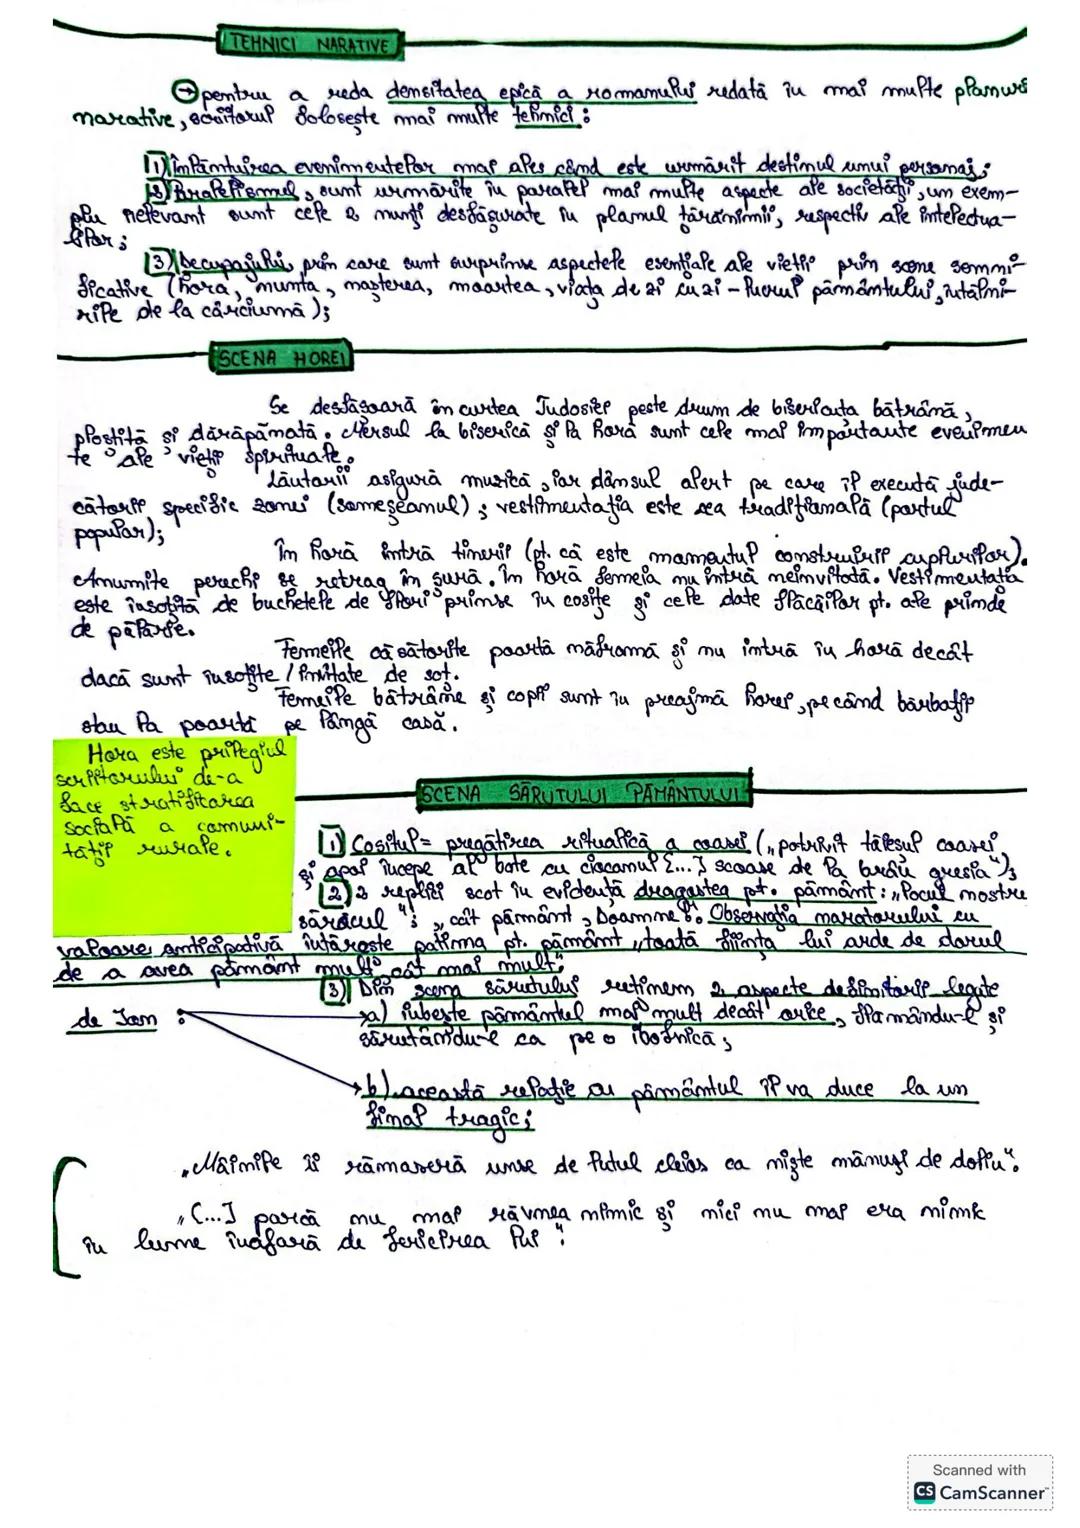 TEHNICI NARATIVE
→ pentru a reda densitatea epică a romanului redată în mai multe planuri
narative, scriitorul folosește mai multe tehnici:
1) Înlănțuirea evenimentelor mai ales când este urmărit destinul unui personaj;
2) Paralelismul, sunt urmărite în paralel mai multe aspecte ale societății, un exem-
plu relevant sunt cele 2 nunți desfășurate în planul țărănimii, respectiv ale intelectua-
lilor;
3) Decupajului, prin care sunt surprinse aspectele esențiale ale vieții prin scene semni-
ficative (hora, nunta, nașterea, moartea, viața de zi cu zi - lucrul pământului, întâlni-
rile de la cârciumă);
SCENA HOREI
Se desfășoară în curtea Tudosiei peste drum de bisericuța bătrână,
pleoștită și dărăpănată. Mersul la biserică și la horă sunt cele mai importante evenimen
te ale vieții spirituale.
Lăutarii asigură muzică, iar dansul alert pe care îl execută jude-
cătorii specific zonei (someșeanul); vestimentația este cea tradițională (portul
popular);
În horă intră tinerii (pt. că este momentul construirii cuplurilor).
Anumite perechi se retrag în șură. În horă femeia nu intră neinvitată. Vestimentația
este însoțită de buchetele de flori prinse în cosițe și cele date flăcăilor pt. ale prinde
de pălărie.
Femeile căsătorite poartă năframă și nu intră în horă decât
dacă sunt însoțite / invitate de soț.
Femeile bătrâne și copii sunt în preajmă horei, pe când bărbații
stau la poartă pe lângă casă.
Hora este prilegiul
scriitorului de-a
face stratificarea
socială a comuni-
tății rurale.
SCENA SĂRUTULUI PĂMÂNTULUI
1) Cositul = pregătirea rituallică a coasei („potrivit tăișul coasei
și apoi începe al bate cu ciocanul [...] scoase de la brâu gresia");
2) 2 replici scot în evidență dragostea pt. pământ: „Locul nostru
săracul"; „cât pământ, Doamne". Observația naratorului cu
valoare anticipativă întărește patima pt. pământ „toată ființa lui arde de dorul
de a avea pământ mult cât mai mult";
3) Din scena sărutului reținem 2 aspecte definitorii legate
de Ion:
a) iubește pământul mai mult decât orice, și
sărutându-l ca pe o ibovnică;
b) această relație cu pământul îl va duce la un
final tragic;
„Mâinile îi rămaseră unse de lutul cleios ca niște mănuși de doliu".
„[...] parcă nu mai râvnea nimic și nici nu mai era nimic
în lume înafară de fericirea lui".
Scanned with
CS CamScanner